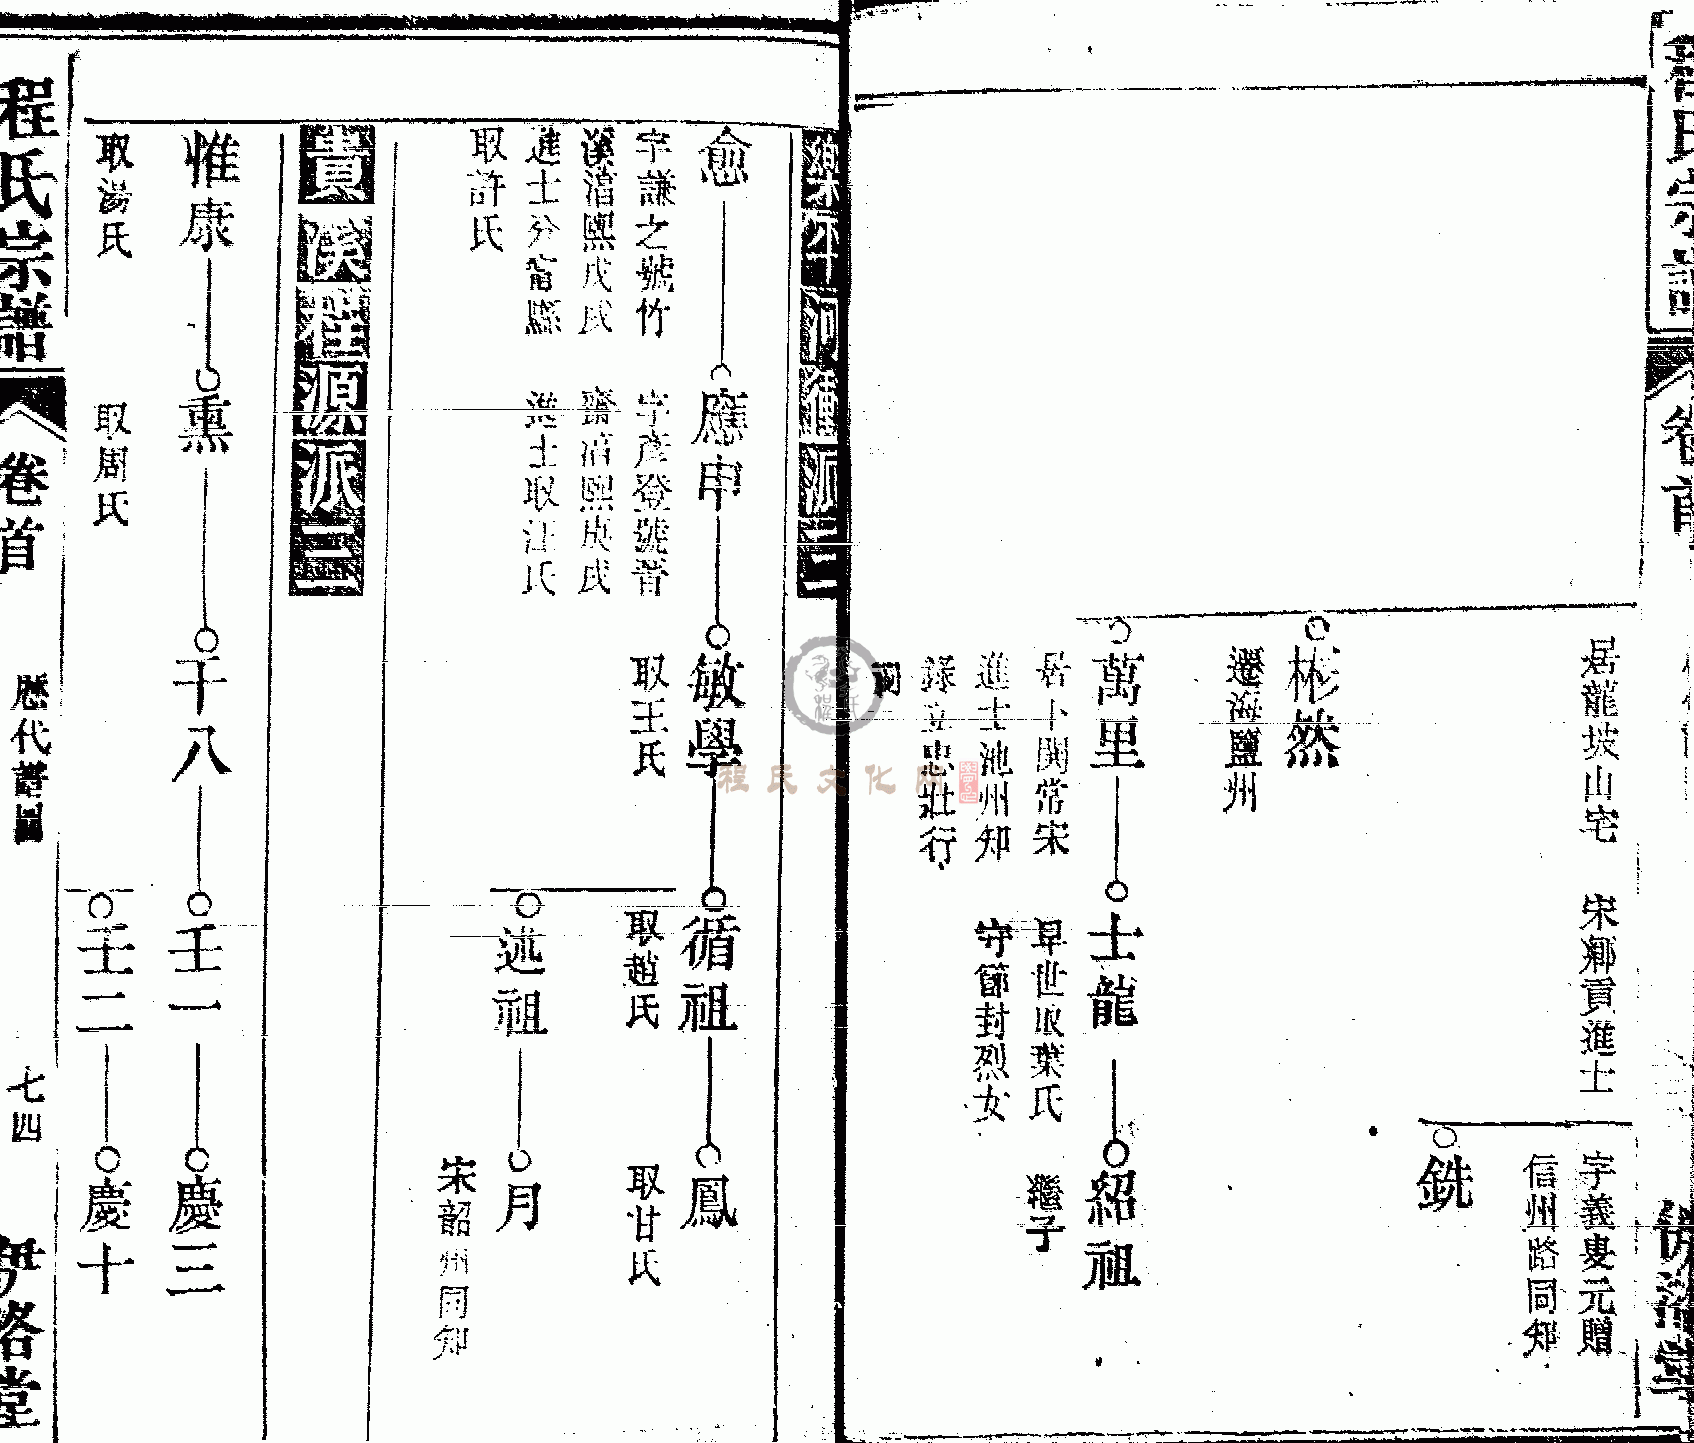 居龍坡山宅
宋鄉貢進士
字義叟元贈
信州路同知
銑
彬然
遷海鹽州
萬里
居十閞常宋
進士池州知
錄立忠壯行
祠
士龍
早世取葉氏
守節封烈女
紹祖
繼子
愈
字謙之號竹
溪淳熙戊戌
進士分甯縣
取許氏
應申
字彥登號晉
齋淳熙庚戌
進士取汪氏
敏學
取王氏
循祖
取趙氏
鳳
取甘氏
述祖
月
宋韶州同知
貴溪程源派三
惟康
取湯氏
熏
取周氏
千八
壬一
慶三
壬二
慶十
程氏宗譜
卷首
歷代譜圖
七四
伊洛堂
程氏文化